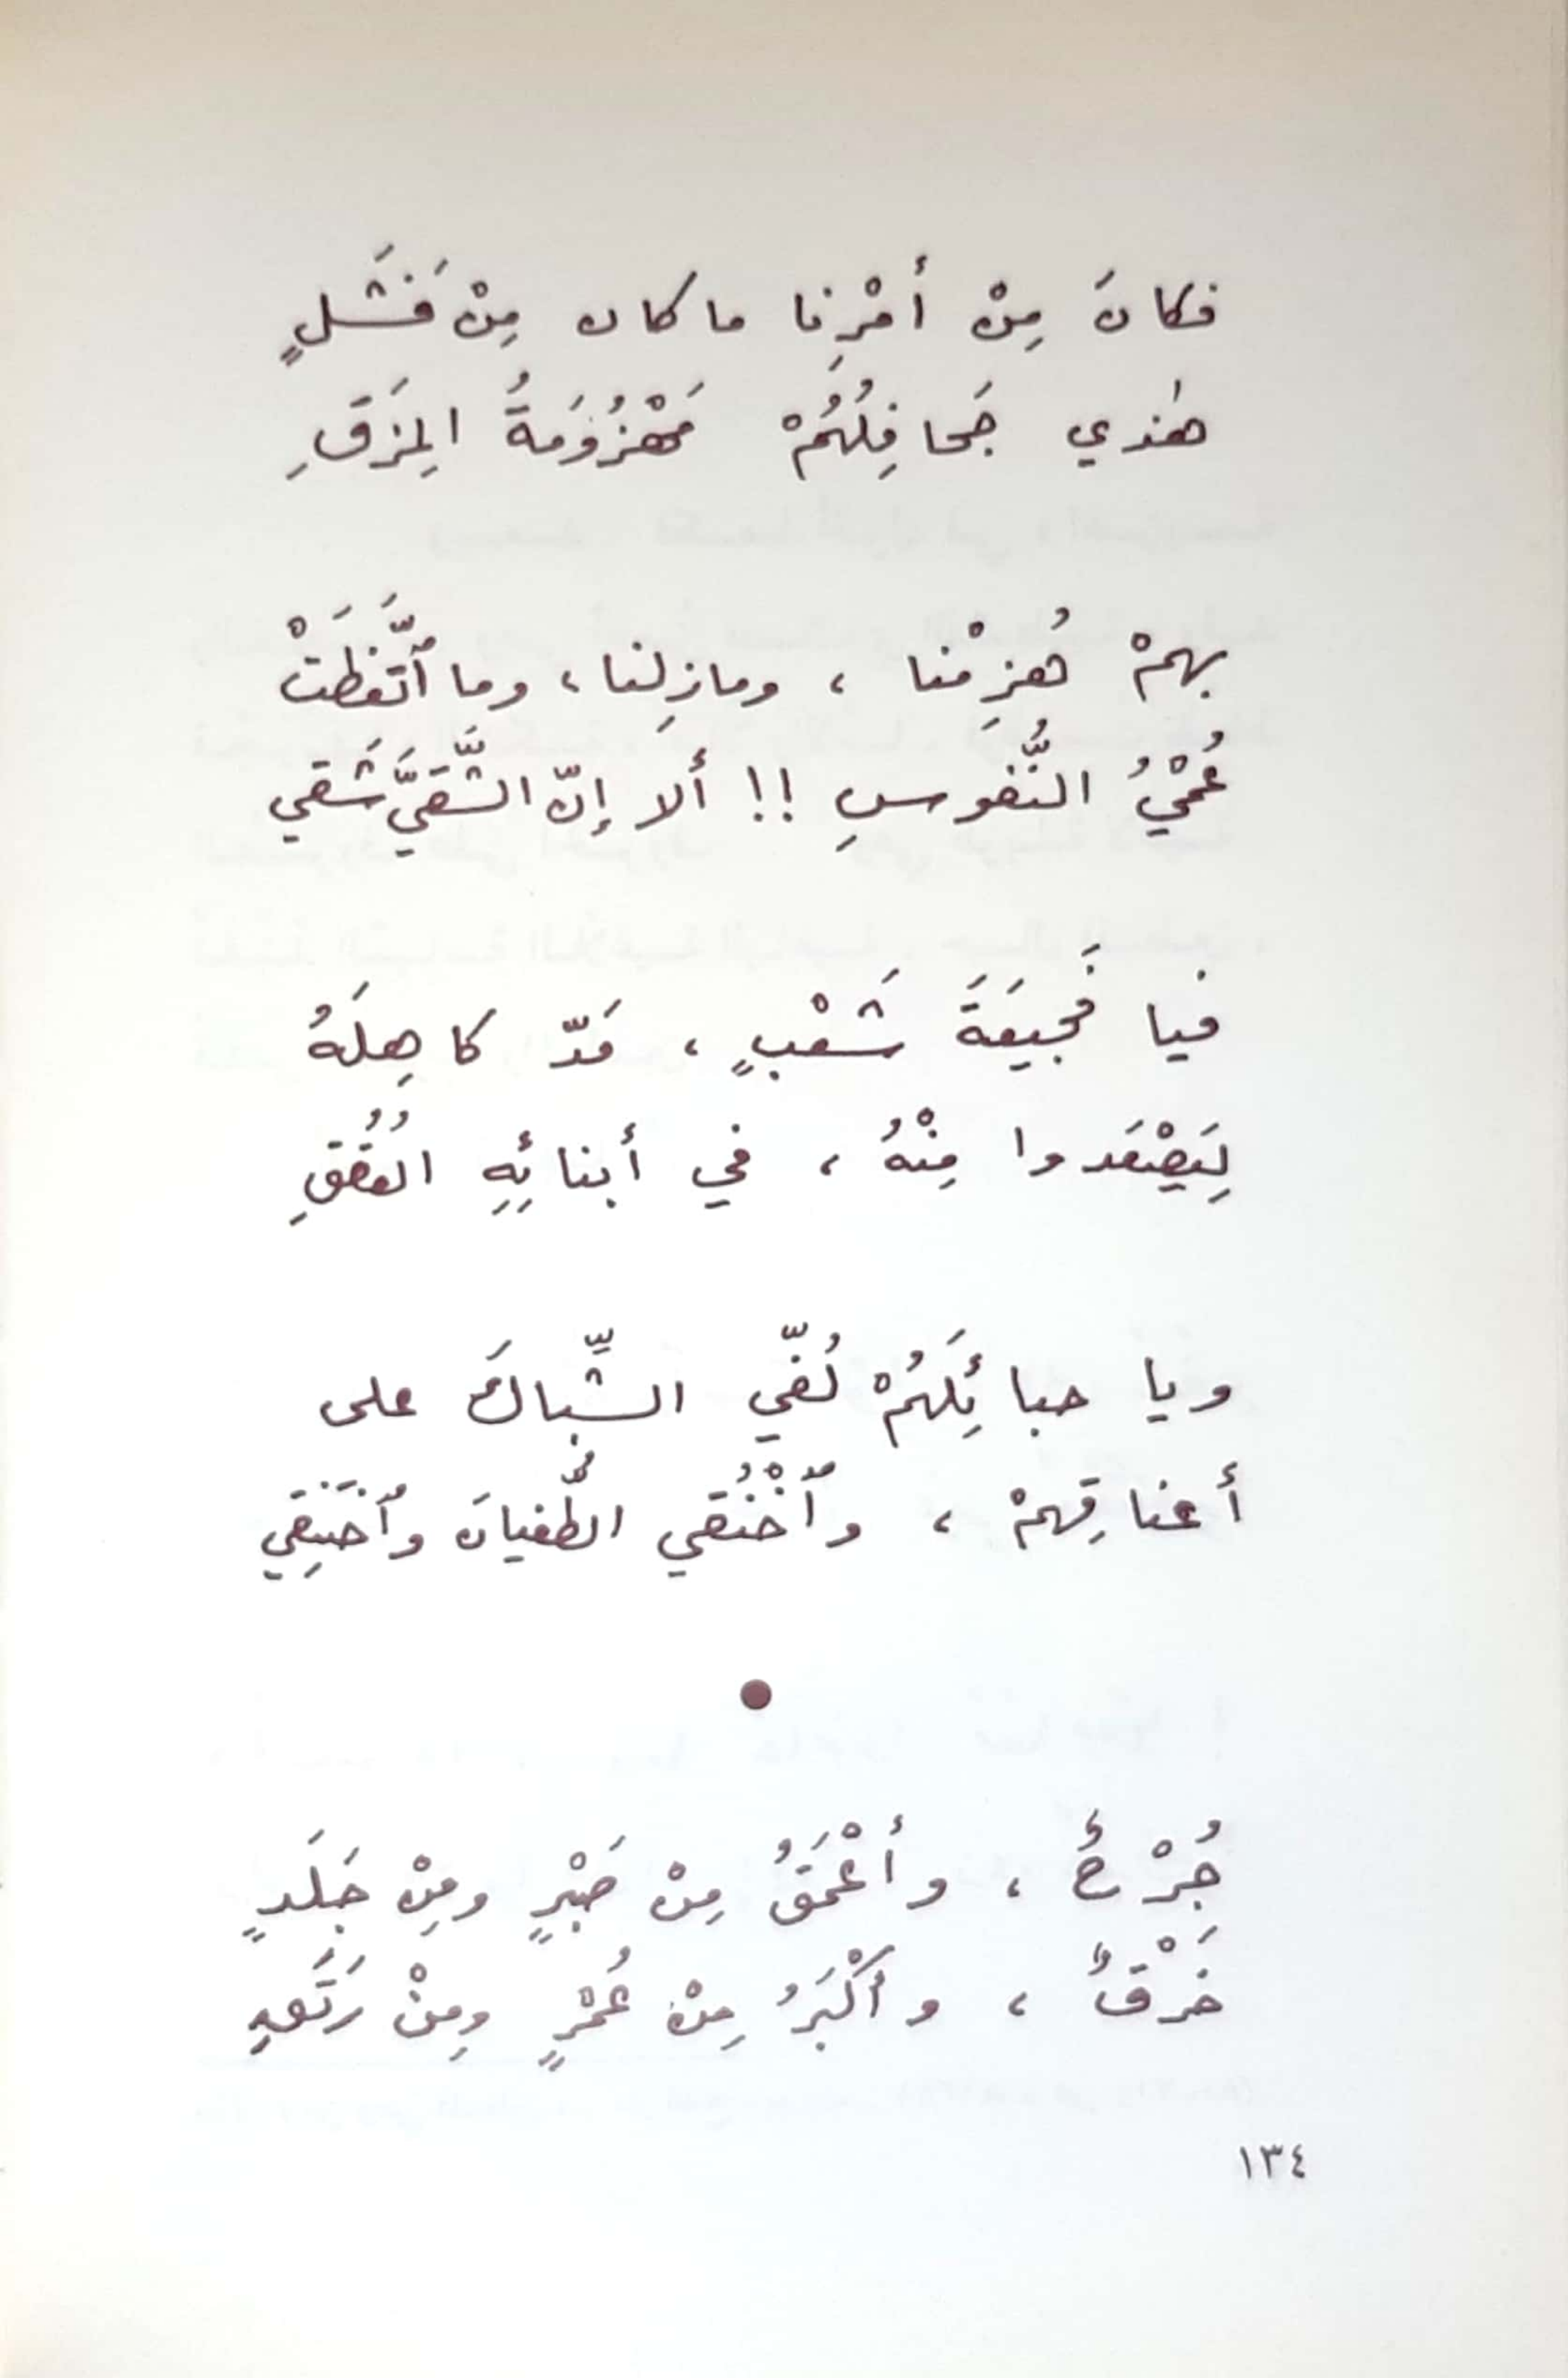 فكانَ مِنْ أمْرِنا ما كان مِنْ فَشَلٍ
هٰذي جَحافِلُهُمْ مَهْزُوَمةُ المِزَقِ
بهمْ هُزِمْنا ، ومازِلنا ، وما ٱتَّعَظَتْ
عُمْيُ النُّفوسِ !! ألا إنّ الشَّقيَّ شَقي
فيا فَجيعَةَ شَعْبٍ ، مَدّ كاهِلَهُ
لِيَصْعَدوا مِنْهُ ، في أبنائِهِ العُقُقِ
ويا حبائِلَهُمْ لُفّي الشِّباكَ على
أعناقِهمْ ، وٱخْنُقي الطُّغيانَ وٱختَنِقي
جُرْحٌ ، وأعْمَقُ مِنْ صَبْرٍ ومِنْ جَلَدٍ
خَرْقٌ ، وأكْبَرُ مِنْ عُمْرٍ ومِنْ رَتَقِ
١٣٤